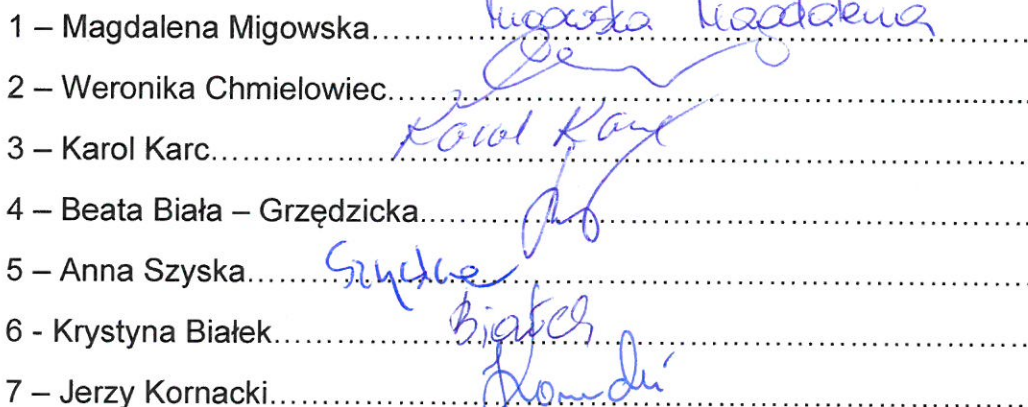 1 – Magdalena Migowska.......... Migowska Magdalena
2 – Weronika Chmielowiec..........
3 – Karol Karc.......... Karol Karc
4 – Beata Biała – Grzędzicka..........
5 – Anna Szyska.......... Szyska
6 - Krystyna Białek.......... Białek
7 – Jerzy Kornacki..........